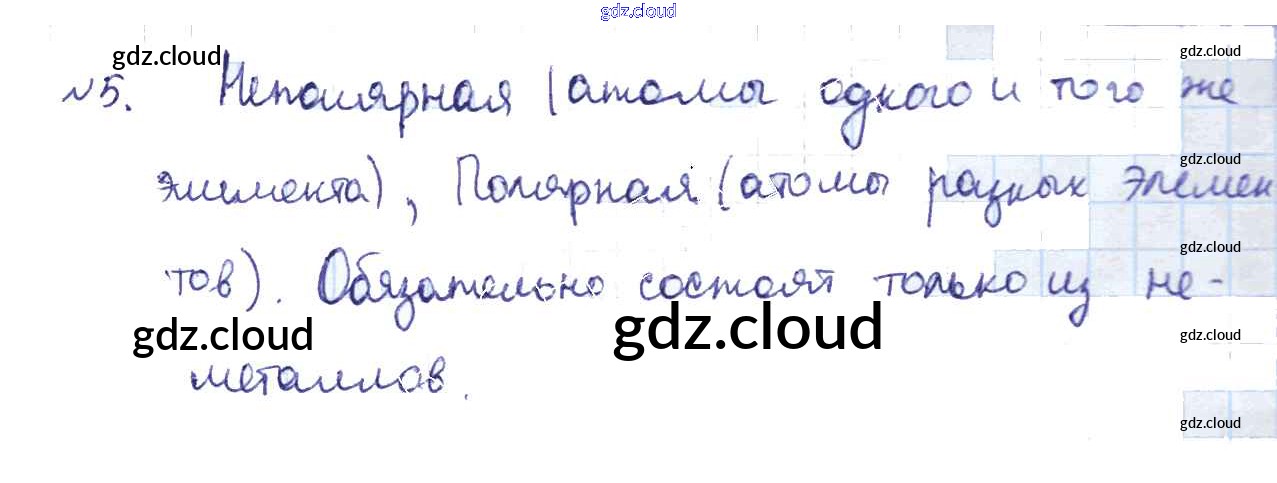 gdz.cloud
gdz.cloud
gdz.cloud
№5. Неполярная (атомы одного и того же
gdz.cloud
элемента), Полярная (атомы разных элемен
gdz.cloud
тов). Обязательно состоят только из не-
gdz.cloud
gdz.cloud
gdz.cloud
металлов.
gdz.cloud